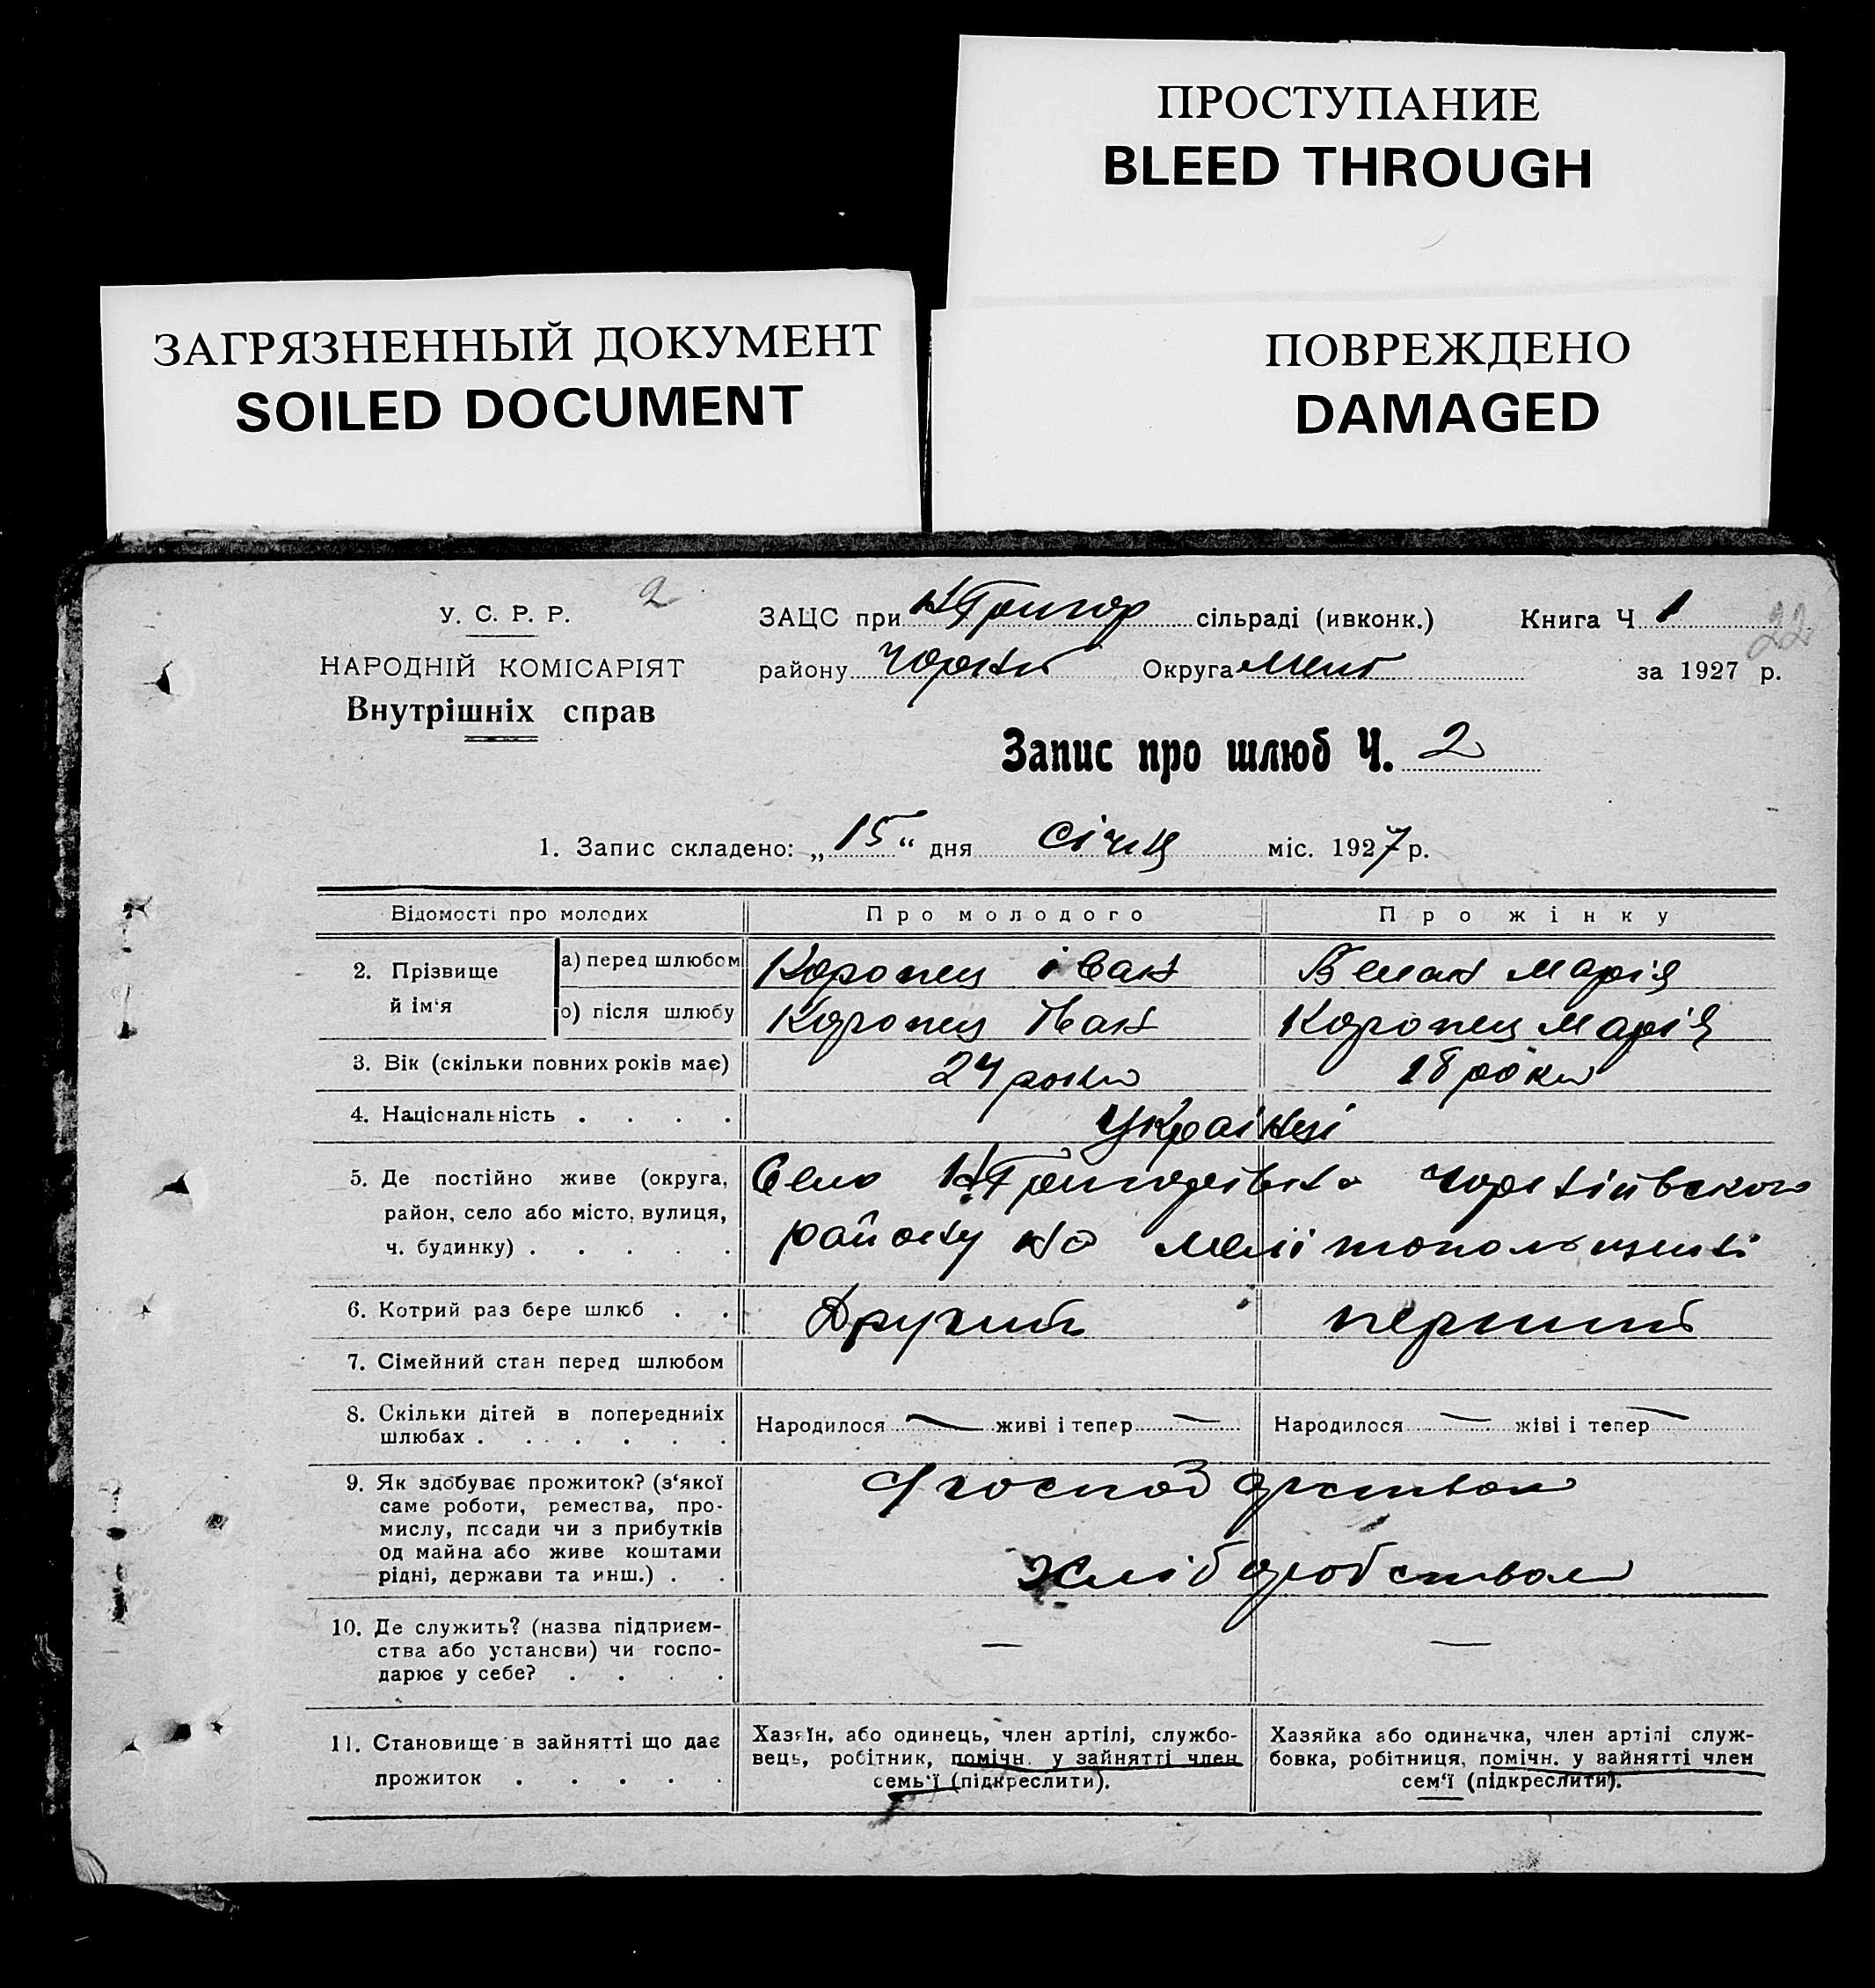 ПРОСТУПАНИЕ
BLEED THROUGH
ЗАГРЯЗНЕННЫЙ ДОКУМЕНТ
SOILED DOCUMENT
ПОВРЕЖДЕНО
DAMAGED
2
У. С. Р. Р.
НАРОДНІЙ КОМІСАРІЯТ
Внутрішніх справ
ЗАЦС при Н Григор сільраді (ивконк.) Книга Ч 1
22
району Чорни Округа Меліт за 1927 р.
Запис про шлюб Ч. 2
1. Запис складено: „15“ дня січня міс. 1927 р.
Відомості про молодих Про молодого Про жінку
2. Прізвище й ім‘я
а) перед шлюбом Коропец іван Веман Марія
о) після шлюбу Коропец Іван Коропец Марія
3. Вік (скільки повних років має) 24 роки 18 роки
4. Національність . . . . Українці
5. Де постійно живе (округа, Село Н Григорівка Чорніївского
район, село або місто, вулиця, району на Мелітопольщині
ч. будинку) . . . . .
6. Котрий раз бере шлюб . . Другий перший
7. Сімейний стан перед шлюбом
8. Скільки дітей в попередниіх Народилося — живі і тепер — Народилося — жіві і тепер —
шлюбах . . . . . .
9. Як здобуває прожиток? (з‘якої
саме роботи, ремества, про-
мислу, посади чи з прибутків
од майна або живе коштами
рідні, держави та инш.) . .
господарством
хлібробством
10. Де служить? (назва підприєм- — —
ства або установи) чи госпо-
дарює у себе? . . . .
11. Становище в зайнятті що дає
прожиток . . . . .
Хазяїн, або одинець, член артілі, службо-
вець, робітник, помічн. у зайнятті член
семь‘ї (підкреслити).
Хазяйка або одиначка, член артілі служ-
бовка, робітниця, помічн. у зайнятті член
сем‘ї (підкреслити).